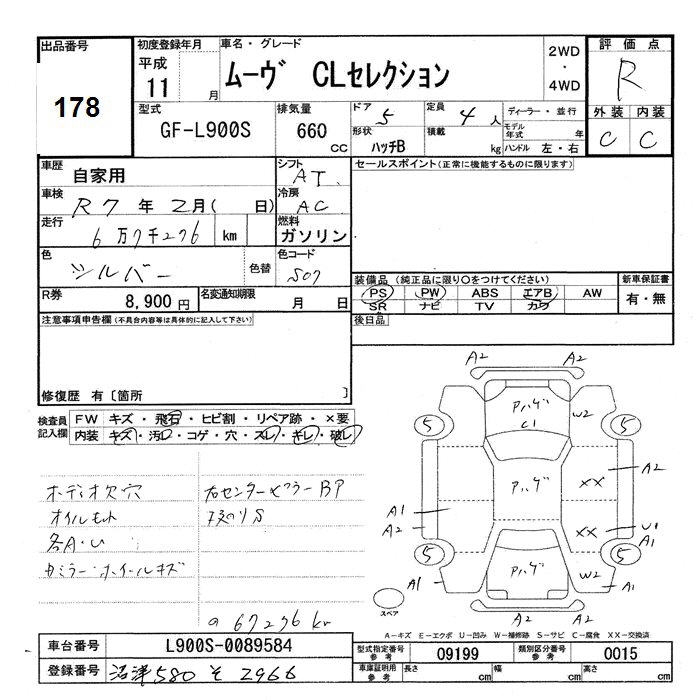 出品番号
178
初度登録年月
平成
11 月
車名・グレード
ムーヴ CLセレクション
2WD
・
4WD
評価点
R
型式
GF-L900S
排気量
660 cc
ドア 5
定員 4 人
ディーラー・並行
形状 ハッチB
積載 kg
モデル年式 年
ハンドル 左・右
外装 内装
C C
車歴
自家用
シフト
AT
セールスポイント(正常に機能するものに限ります)
車検
R7 年 2月( 日)
冷房
AC
走行
6万7千276 km
燃料
ガソリン
色
シルバー
色替
色コード
S07
R券
8,900 円
名変通知期限
月 日
装備品 (純正品に限り○をつけてください)
PS PW ABS エアB AW
SR ナビ TV カワ
新車保証書
有・無
注意事項申告欄(不具合内容等は具体的に記入して下さい)
後日品
修復歴 有〔箇所 〕
検査員記入欄
FW キズ・飛石・ヒビ割・リペア跡・×要
内装 キズ・汚レ・コゲ・穴・スレ・キレ・破レ
オイルもれ
各A・U
右センターピラーBP
67276 km
A2 A2
アハゲ
C1
W2
5 5
A2
アハゲ
XX
A1
A2
XX
U1
A1
5 5
アハゲ
W2
A1 A1
A2 A2
スペア
A-キズ E-エクボ U-凹み W-補修跡 S-サビ C-腐食 XX-交換済
車台番号
L900S-0089584
登録番号
沼津580 そ 2966
型式指定番号参考
09199
類別区分番号参考
0015
車庫証明用参考
長さ cm
幅 cm
高さ cm